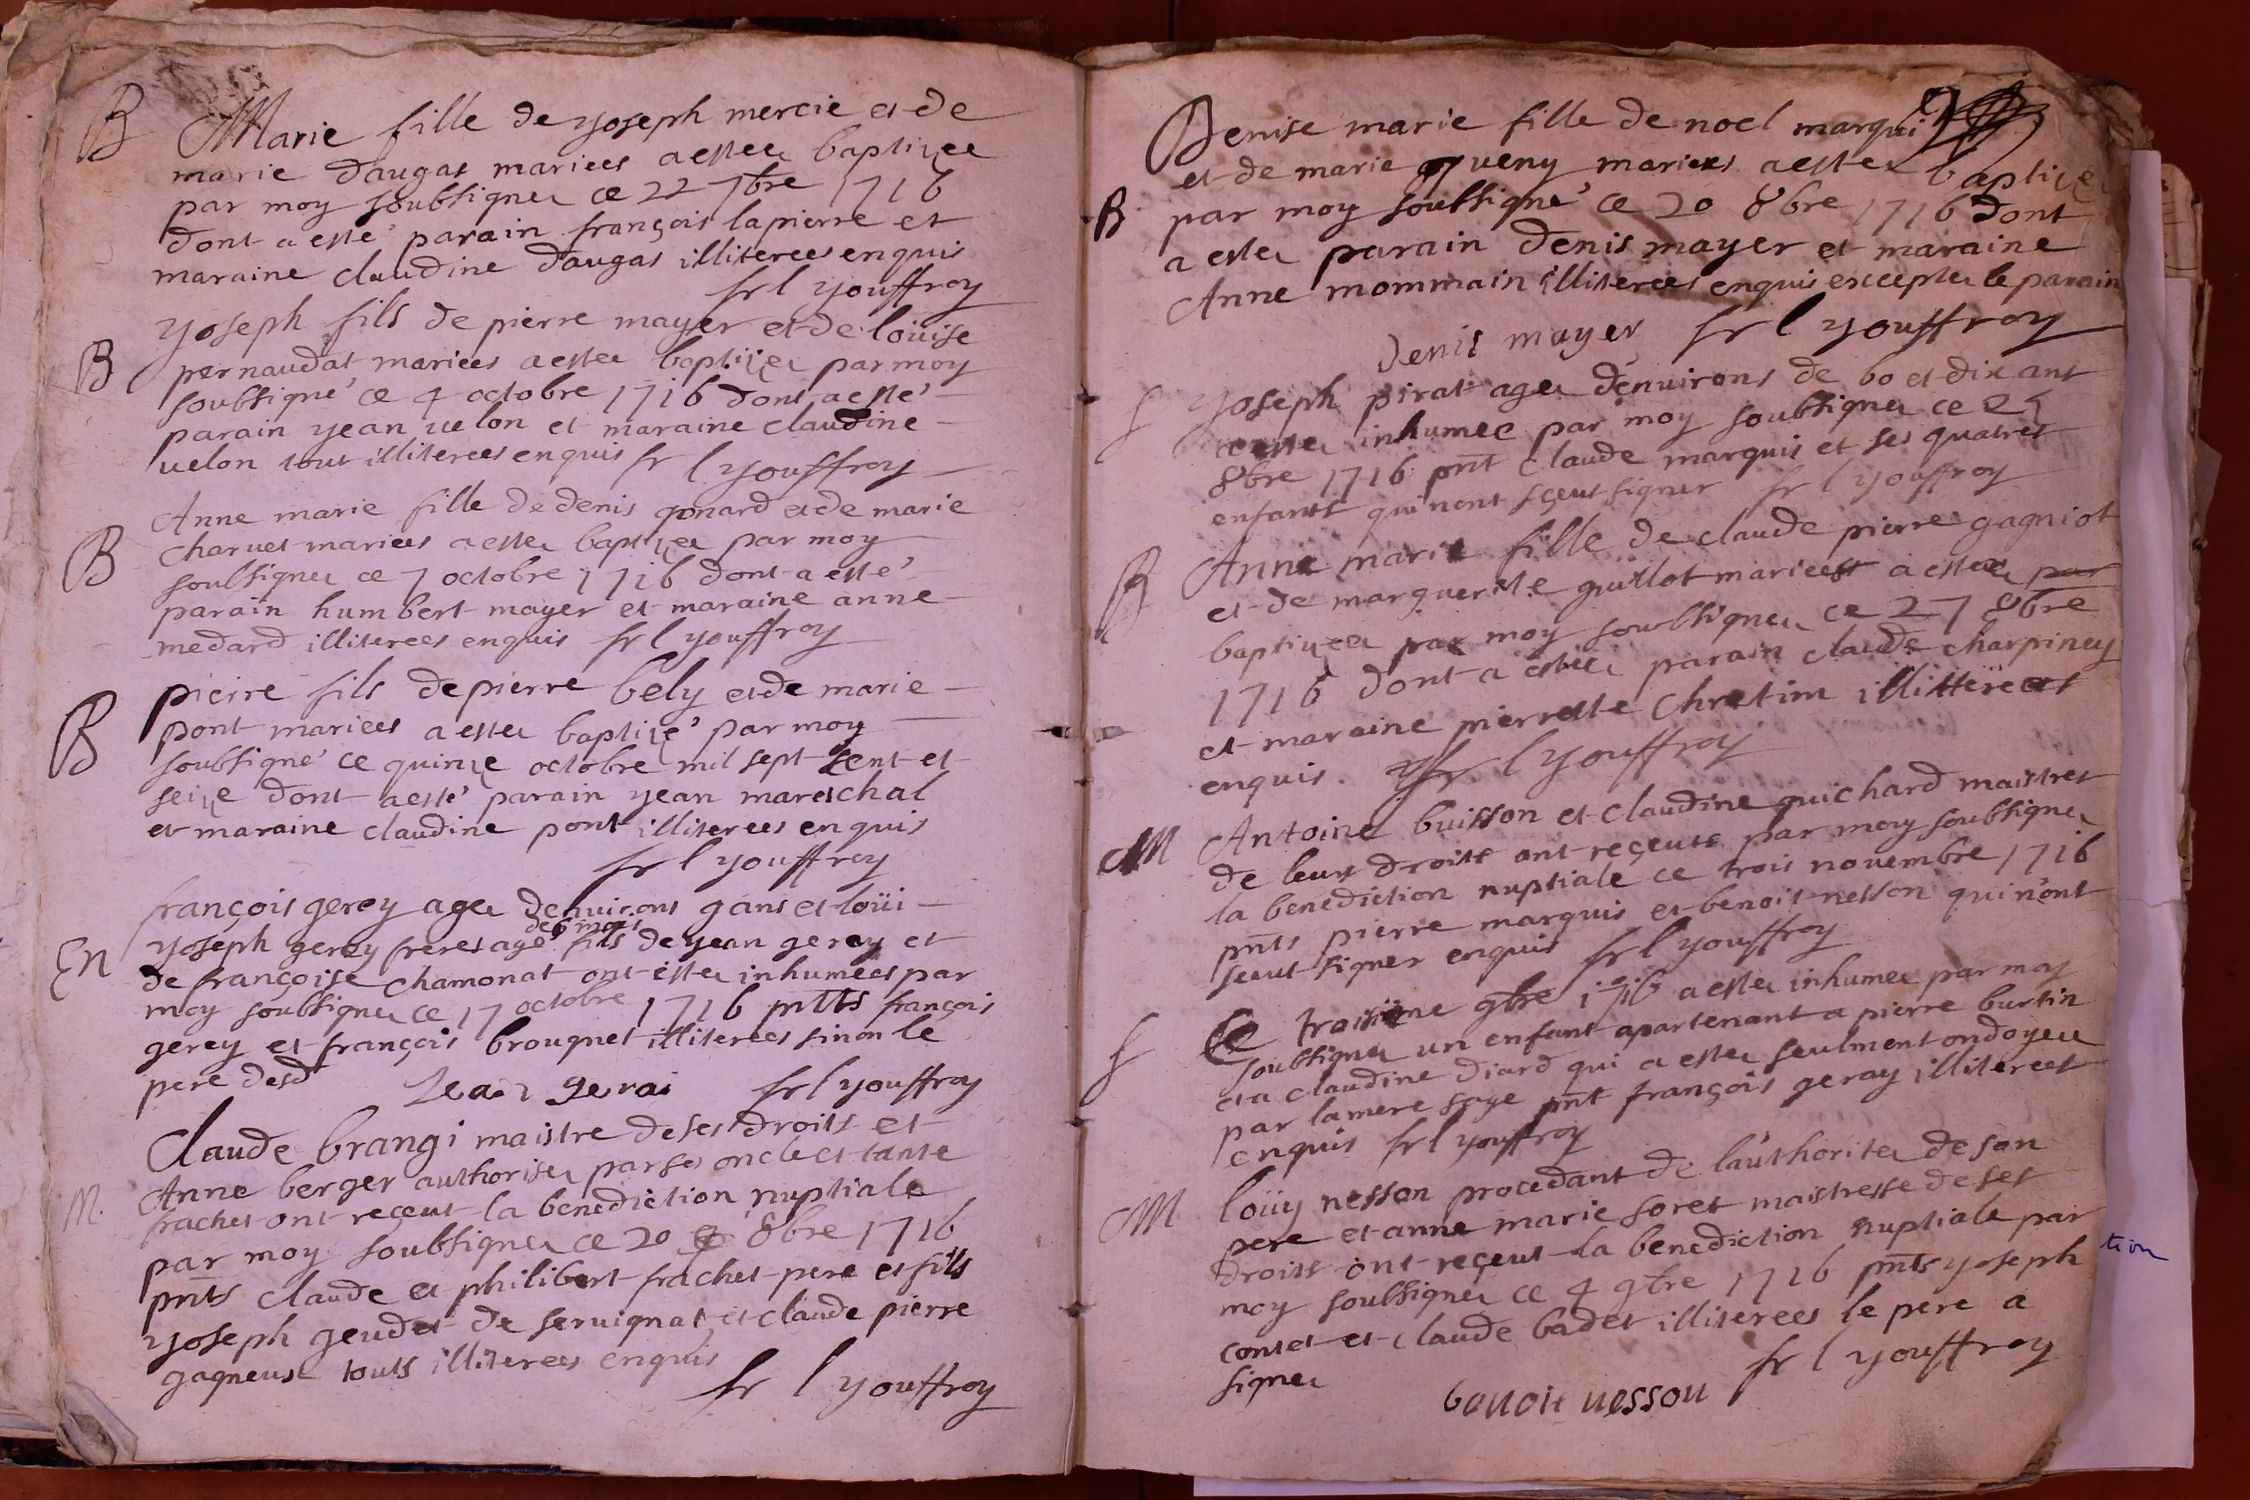 B Marie fille de yoseph mercie et de
marie daugas mariees a estee baptizee
par moy soubsignez ce 22 7bre 1716
dont a esté parain françois lapierre et
maraine claudine daugas illiterees enquis
fr l youffroy
yoseph fils de pierre mayer et de loüise
B pernaudat mariees a estez baptizez par moy
soubsigné ce 4 octobre 1716 dont a esté
parain yean uelon et maraine claudine
uelon tout illiterees enquis fr l youffroy
Anne marie fille de denis gonard et de marie
B charuet mariees a estez baptizez par moy
soubsignez ce 7 octobre 1716 dont a esté
parain humbert mayer et maraine anne
medard illiterees enquis fr l youffroy
pierre fils de pierre bely et de marie
B pont mariees a estez baptizé par moy
soubsigné ce quinze octobre mil sept cent et
seize dont a esté parain yean mareschal
et maraine claudine pont illiterees enquis
fr l youffroy
françois gerey agez denuirons 9 ans et loüi
de 6 mois
En yoseph gerey freres agé fils de yean gerey et
de françoise chamonat ont estez inhumees par
moy soubsignez ce 17 octobre 1716 pnts françois
gerey et françois brouquet illiterees sinon le
pere desd Jean gerai fr l youffroy
Claude brangi maistre de ses droits et
M Anne berger authorisez par ses oncle et tante
frachet ont reçeut la benediction nuptiale
par moy soubsignez ce 20 8bre 1716
pnts claude et philibert frachet pere et fils
yoseph geudet de seruignat et claude pierre
gagneust touts illiterees enquis
fr l youffroy
Denise marie fille de noel marqui
et de marie queny mariees a estez baptizez
B par moy soubsigné ce 20 8bre 1716 dont
a estez parain denis mayer et maraine
Anne mommain illiterees enquis exceptez le parain
denis mayer fr l youffroy
S yoseph pirat agez denuirons de 60 et dix ans
a estez inhumee par moy soubsignez ce 25
8bre 1716 pnt claude marquis et ses quatres
enfants qui nont sçeut signer fr l youffroy
B Anne marie fille de claude pierre gagniot
et de marguerite guillot mariees a estez par
baptizez par moy soubsignez ce 27 8bre
1716 dont a estez parain claude charpiney
et maraine pierrette chretim illitterees
enquis fr l youffroy
M Antoine buisson et claudine guichard maistres
de leurs droits ont reçeuts par moy soubsignez
la benediction nuptiale ce trois nouembre 1716
pnts pierre marquis et benoit nesson qui n'ont
seeut signer enquis fr l youffroy
S Ce troisiême 9bre 1716 a estez inhumez par moy
soubsignez un enfant apartenant a pierre burtin
et a claudine diard qui a estez seulment ondoyee
par la mere sage pnt françois geray illiterees
enquis fr l youffroy
M loüiy nesson procedant de l'authoritez de son
pere et anne marie soret maistresse de ses
droits ont reçeut la benediction nuptiale par
moy soubsignez ce 4 9bre 1716 pnts yoseph
contet et claude badet illiterees le pere a
signez fr l youffroy
benoit nesson
tion